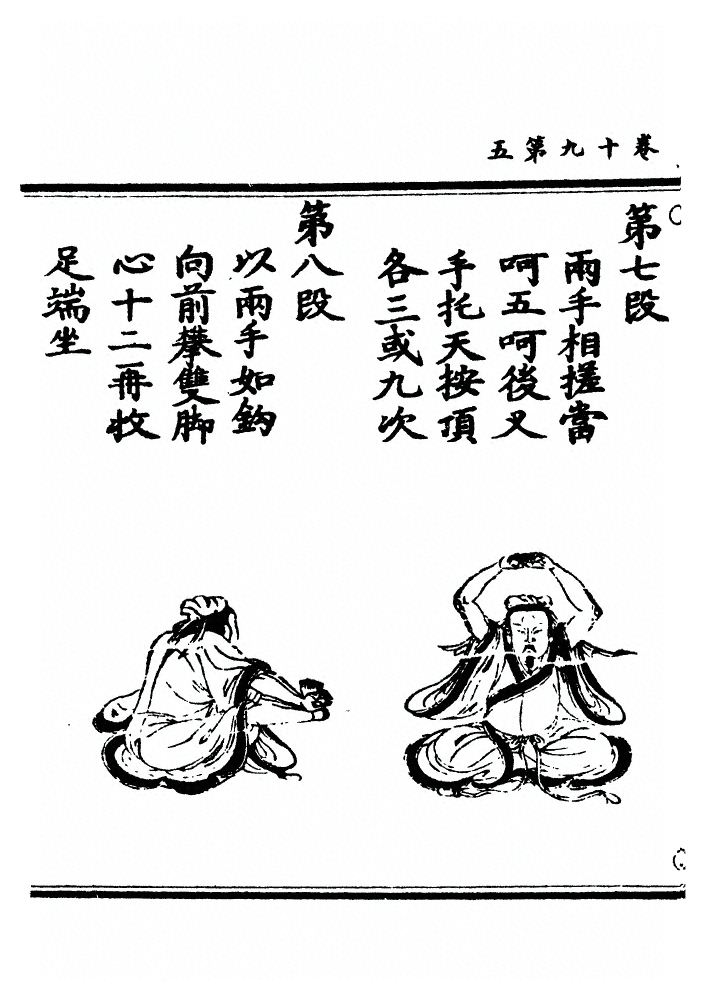 卷十九第五
第七段
兩手相搓當
呵五呵後叉
手托天按頂
各三或九次
第八段
以兩手如鈎
向前攀雙脚
心十二再收
足端坐